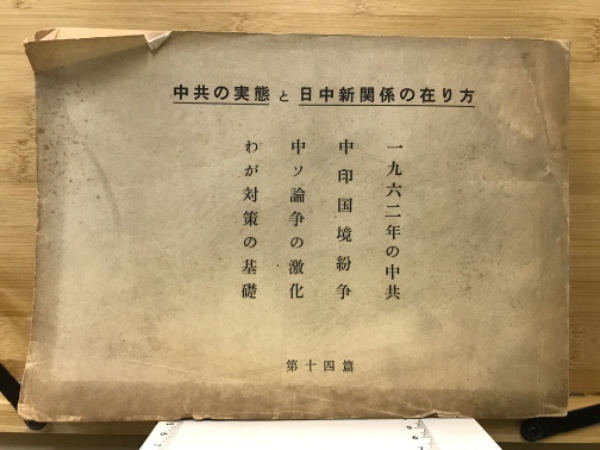 中共の実態と日中新関係の在り方
一九六二年の中共
中印国境紛争
中ソ論争の激化
わが対策の基礎
第十四篇